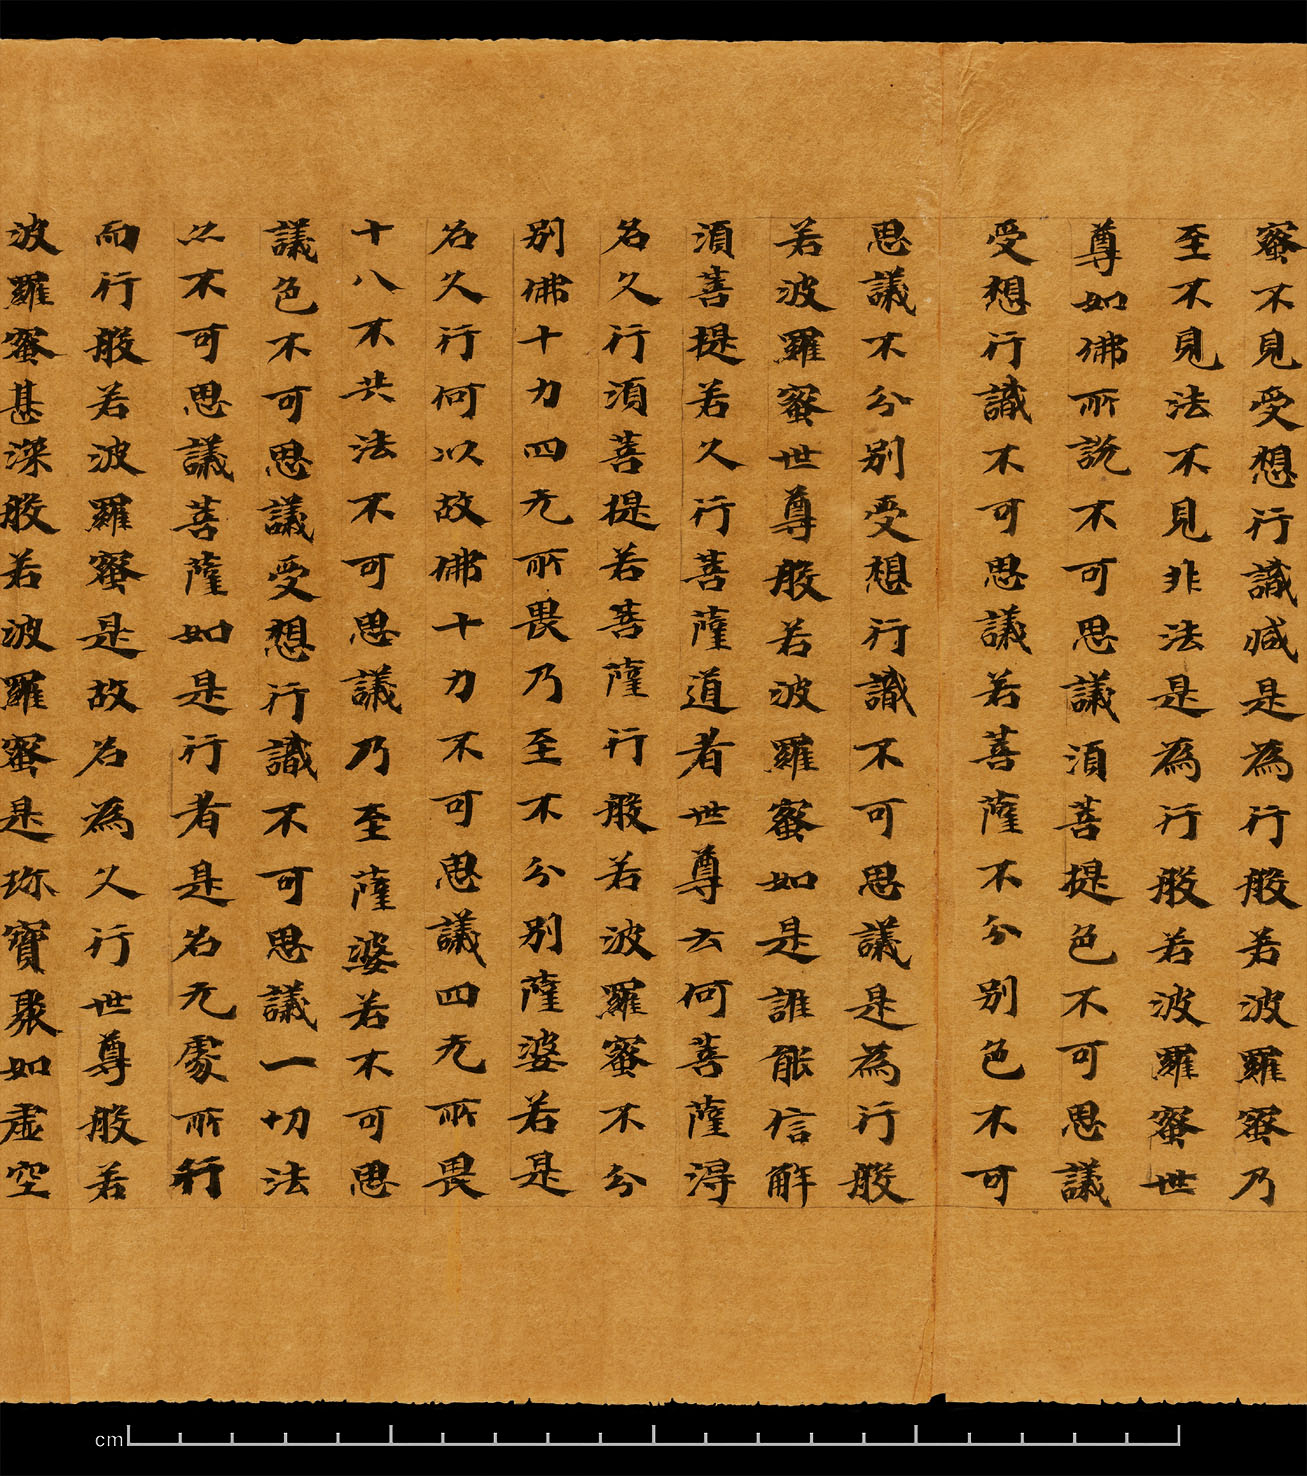 蜜不見受想行識减是為行般若波羅蜜乃
至不見法不見非法是為行般若波羅蜜世
尊如佛所說不可思議須菩提色不可思議
受想行識不可思議若菩薩不分別色不可
思議不分別受想行識不可思議是為行般
若波羅蜜世尊般若波羅蜜如是誰能信解
須菩提若久行菩薩道者世尊云何菩薩淂
名久行須菩提若菩薩行般若波羅蜜不分
別佛十力四无所畏乃至不分別薩婆若是
名久行何以故佛十力不可思議四无所畏
十八不共法不可思議乃至薩婆若不可思
議色不可思議受想行識不可思議一切法
亦不可思議菩薩如是行者是名无處所行
而行般若波羅蜜是故名為久行世尊般若
波羅蜜甚深般若波羅蜜是珎寶聚如虛空
cm